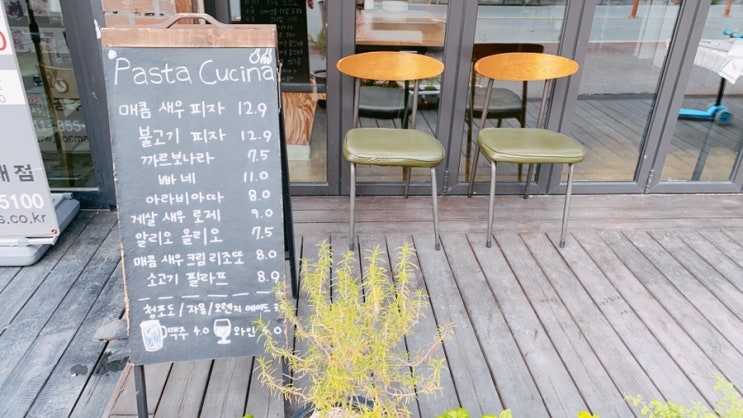 Pasta Cucina
매콤 새우 피자 12.9
불고기 피자 12.9
까르보나라 7.5
빠네 11.0
아라비아따 8.0
게살 새우 로제 9.0
알리오 올리오 7.5
매콤 새우크림 리조또 8.0
소고기 필라프 8.9
청포도/자몽/오렌지 에이드
맥주 4.0 와인
5100
s.co.kr